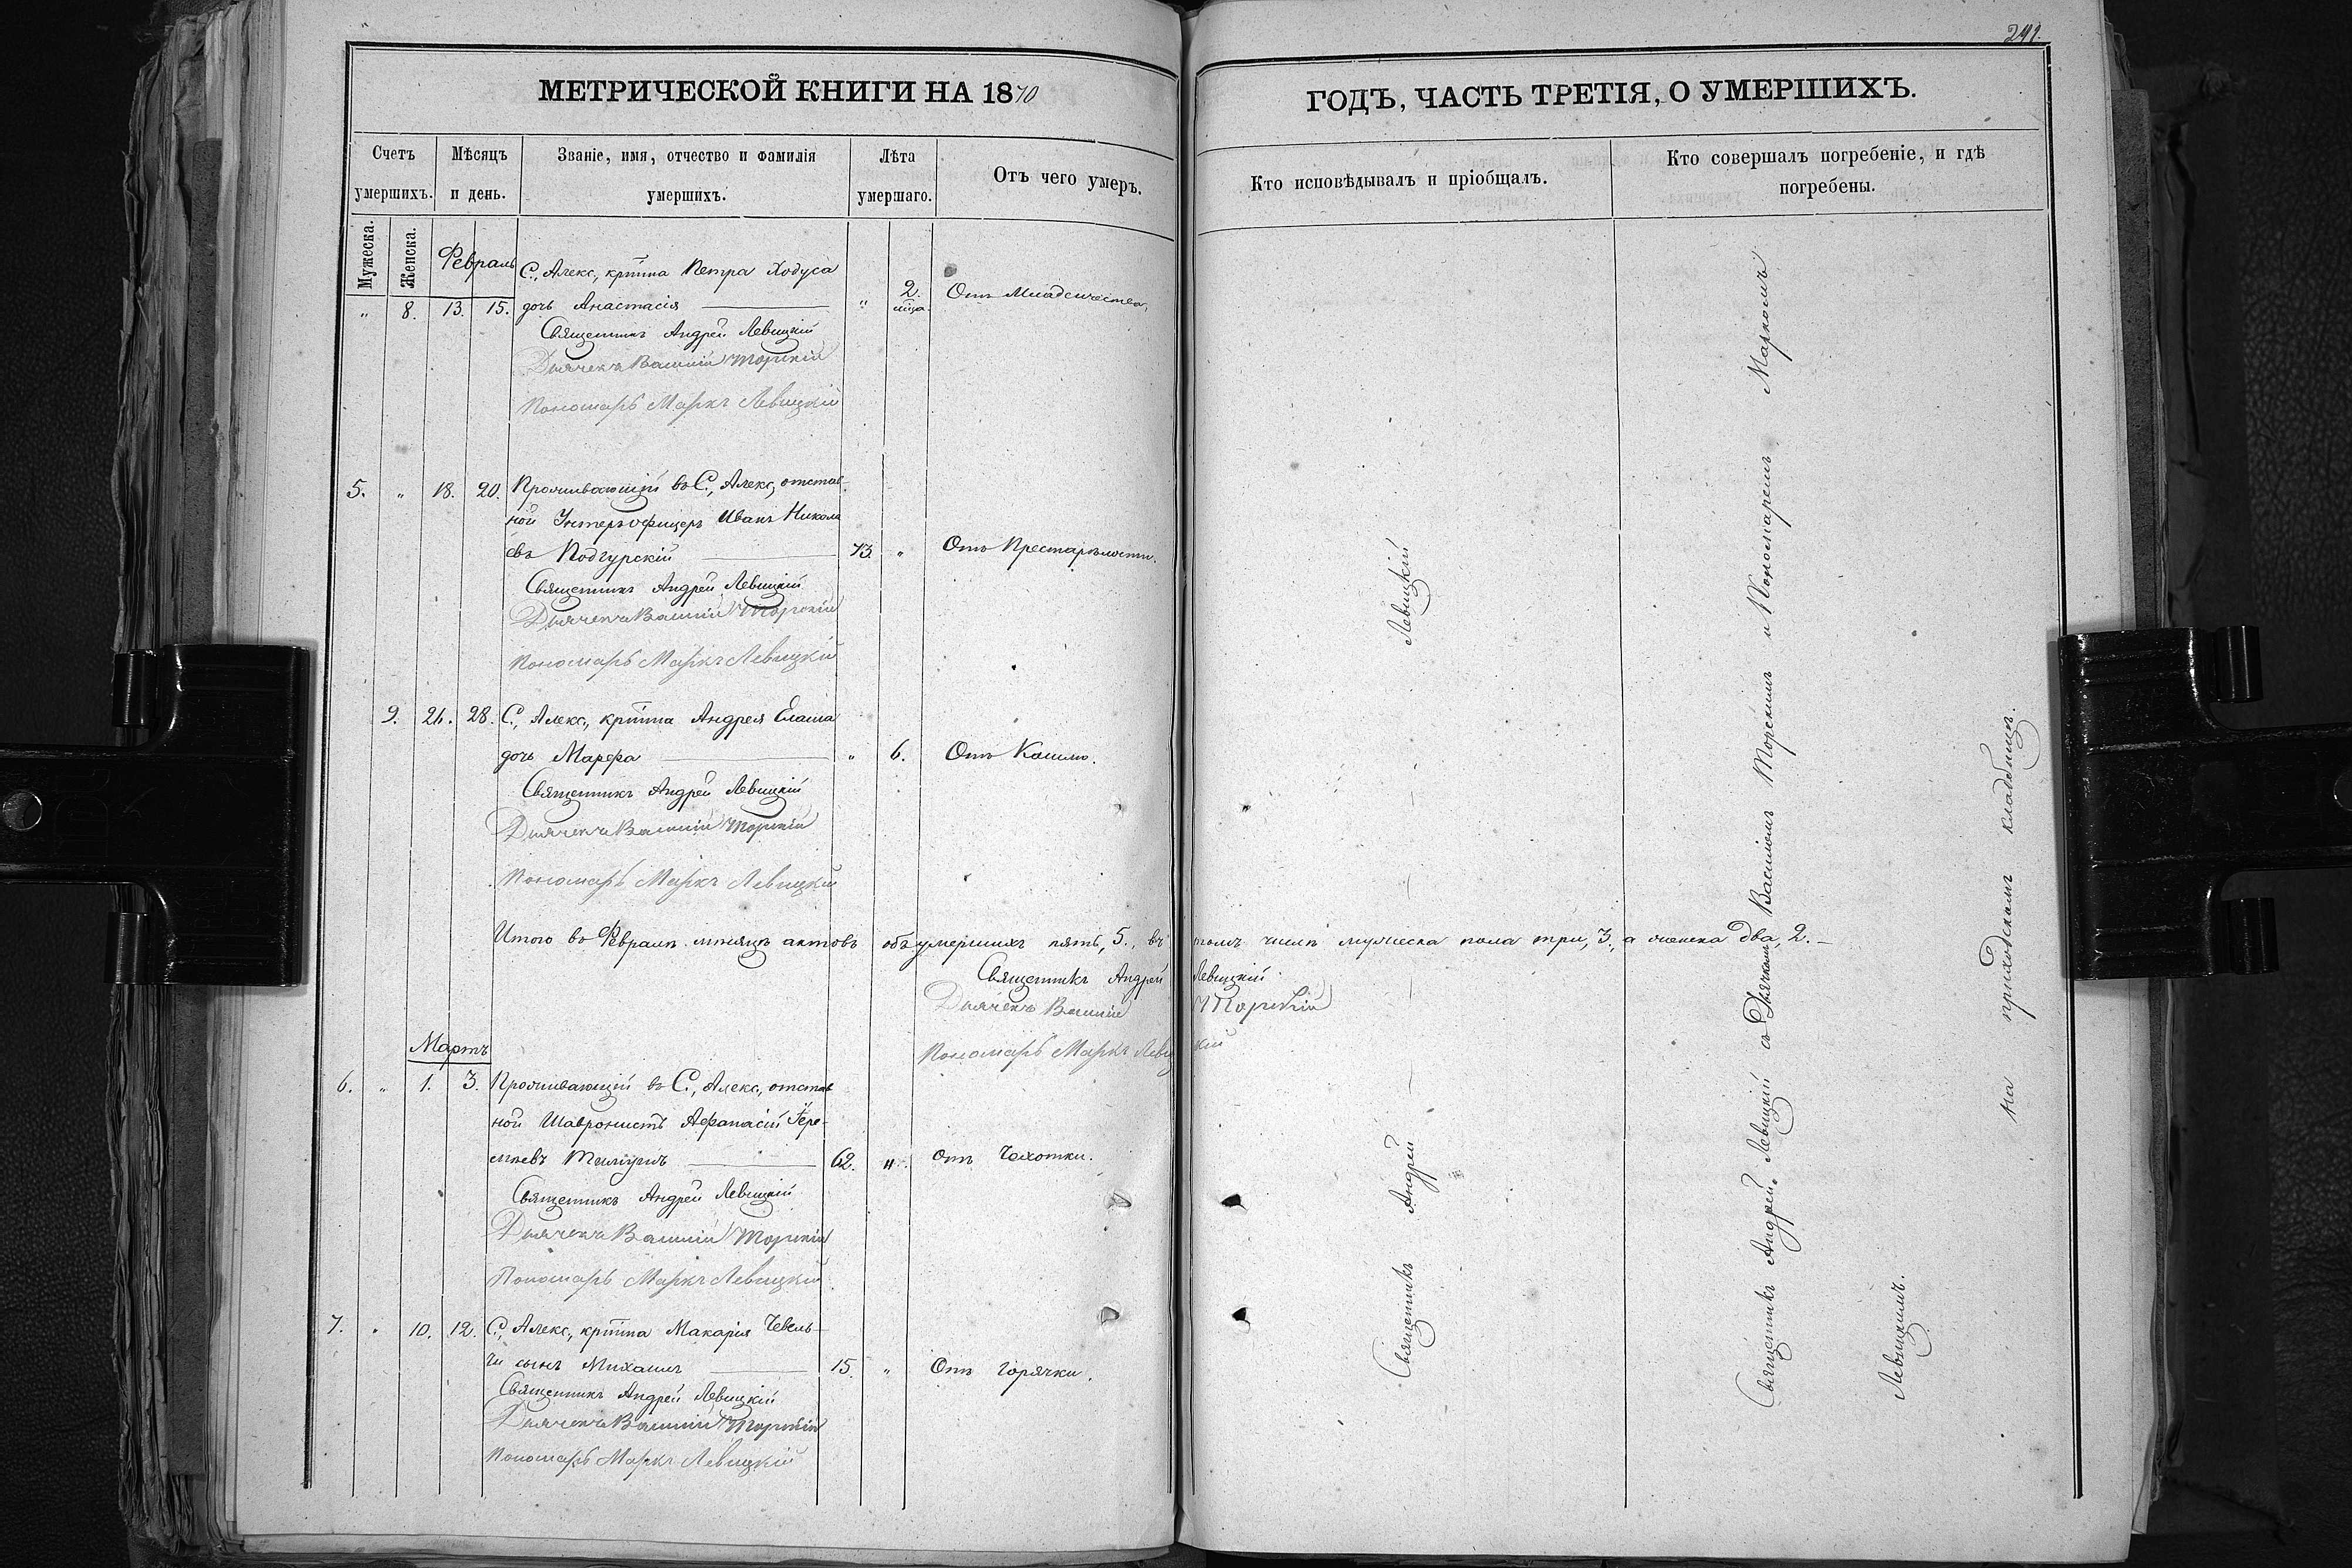 241.
МЕТРИЧЕСКОЙ КНИГИ НА 1870
ГОДЪ, ЧАСТЬ ТРЕТІЯ, О УМЕРШИХЪ.
Счетъ умершихъ.
Мѣсяцъ и день.
Званіе, имя, отчество и фамилія умершихъ.
Лѣта умершаго.
Отъ чего умеръ.
Кто исповѣдывалъ и пріобщалъ.
Кто совершалъ погребеніе, и гдѣ погребены.
Мужеска.
Женска.
Февраль
С., Алекс., кртнна Петра Ходуса
„ 8. 13. 15. дочь Анастасія „ 2. мца. Отъ Младенчества,
Священникъ Андрей Левицкій
Дьячекъ Василій Торскій
Пономарь Маркъ Левицкій
5. „ 18. 20. Проживающій въ С., Алекс, отстав-
ной Унтеръ офицеръ Иванъ Никола
евъ Подгурскій 73. „ Отъ Престарѣлости.
Священникъ Андрей Левицкій
Дьячекъ Василій Торскій
Пономарь Маркъ Левицкій
9. 26. 28. С., Алекс., кртнна Андрея Елаша
дочь Марфа „ 6. Отъ Кашлю.
Священникъ Андрей Левицкій
Дьячекъ Василій Торскій
Пономарь Маркъ Левицкій
Итого въ Февралѣ мѣсяцѣ актовъ объ умершихъ пять, 5., въ томъ числѣ мужеска пола три, 3., а женска два, 2. —
Священникъ Андрей Левицкій
Дьячекъ Василій Торскій
Пономарь Маркъ Левицкій
Мартъ
6. „ 1. 3. Проживающій въ С., Алекс., отстав
ной Афанасій Ере-
мѣевъ 62. „ Отъ Чахотки.
Священникъ Андрей Левицкій
Дьячекъ Василій Торскій
Пономарь Маркъ Левицкій
7. „ 10. 12. С., Алекс., кртнна Макарія Чевель-
чи сынъ Михаилъ 15. „ Отъ Горячки.
Священникъ Андрей Левицкій
Дьячекъ Василій Торскій
Пономарь Маркъ Левицкій
Священникъ Андрей Левицкій
Священникъ Андрей Левицкій съ Дьячкомъ Василіемъ Торскимъ и Пономаремъ Маркомъ
Левицкимъ.
на приходскомъ кладбищѣ.